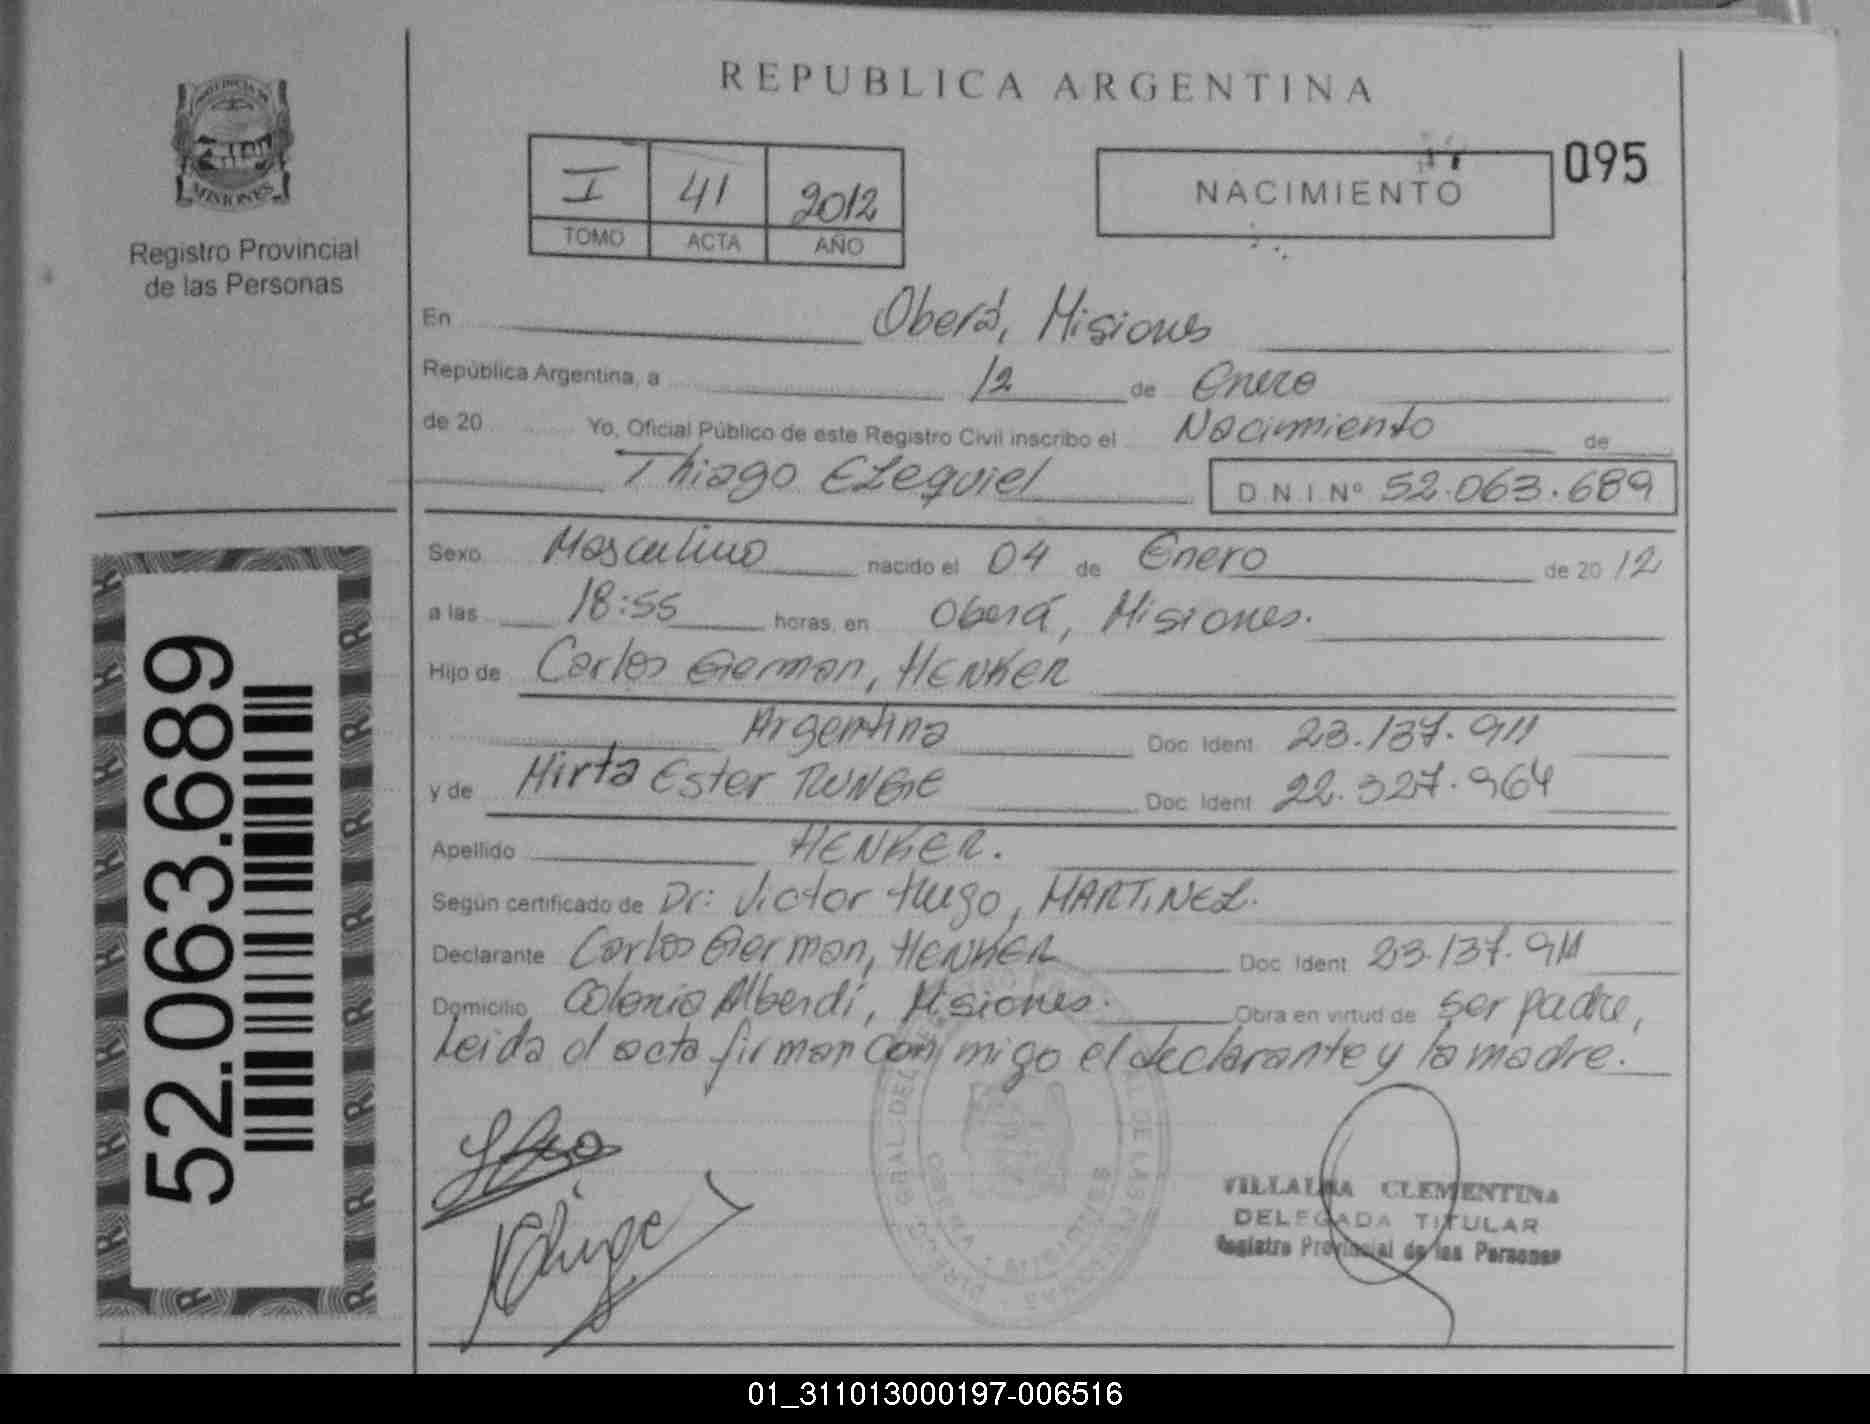 REPUBLICA ARGENTINA
PROVINCIA DE
MISIONES
Registro Provincial
de las Personas
I 41 2012
TOMO ACTA AÑO
NACIMIENTO
095
En Oberá, Misiones
República Argentina, a 12 de Enero
de 20 Yo, Oficial Público de este Registro Civil inscribo el Nacimiento de
Thiago Ezequiel D N I Nº 52.063.689
Sexo Masculino nacido el 04 de Enero de 20 12
a las 18:55 horas, en Oberá, Misiones.
Hijo de Carlos German, HENKER
Argentina Doc Ident 23.137.911
y de Mirta Ester RUNGE Doc Ident 22.327.964
Apellido HENKER.
Según certificado de Dr: Victor Hugo, MARTINEZ.
Declarante Carlos German, HENKER Doc Ident 23.137.911
Domicilio Colonia Alberdi, Misiones. Obra en virtud de ser padre,
Leida el acta firman con migo el declarante y la madre.
52.063.689
VILLALBA CLEMENTINA
DELEGADA TITULAR
Registro Provincial de las Personas
01_311013000197-006516